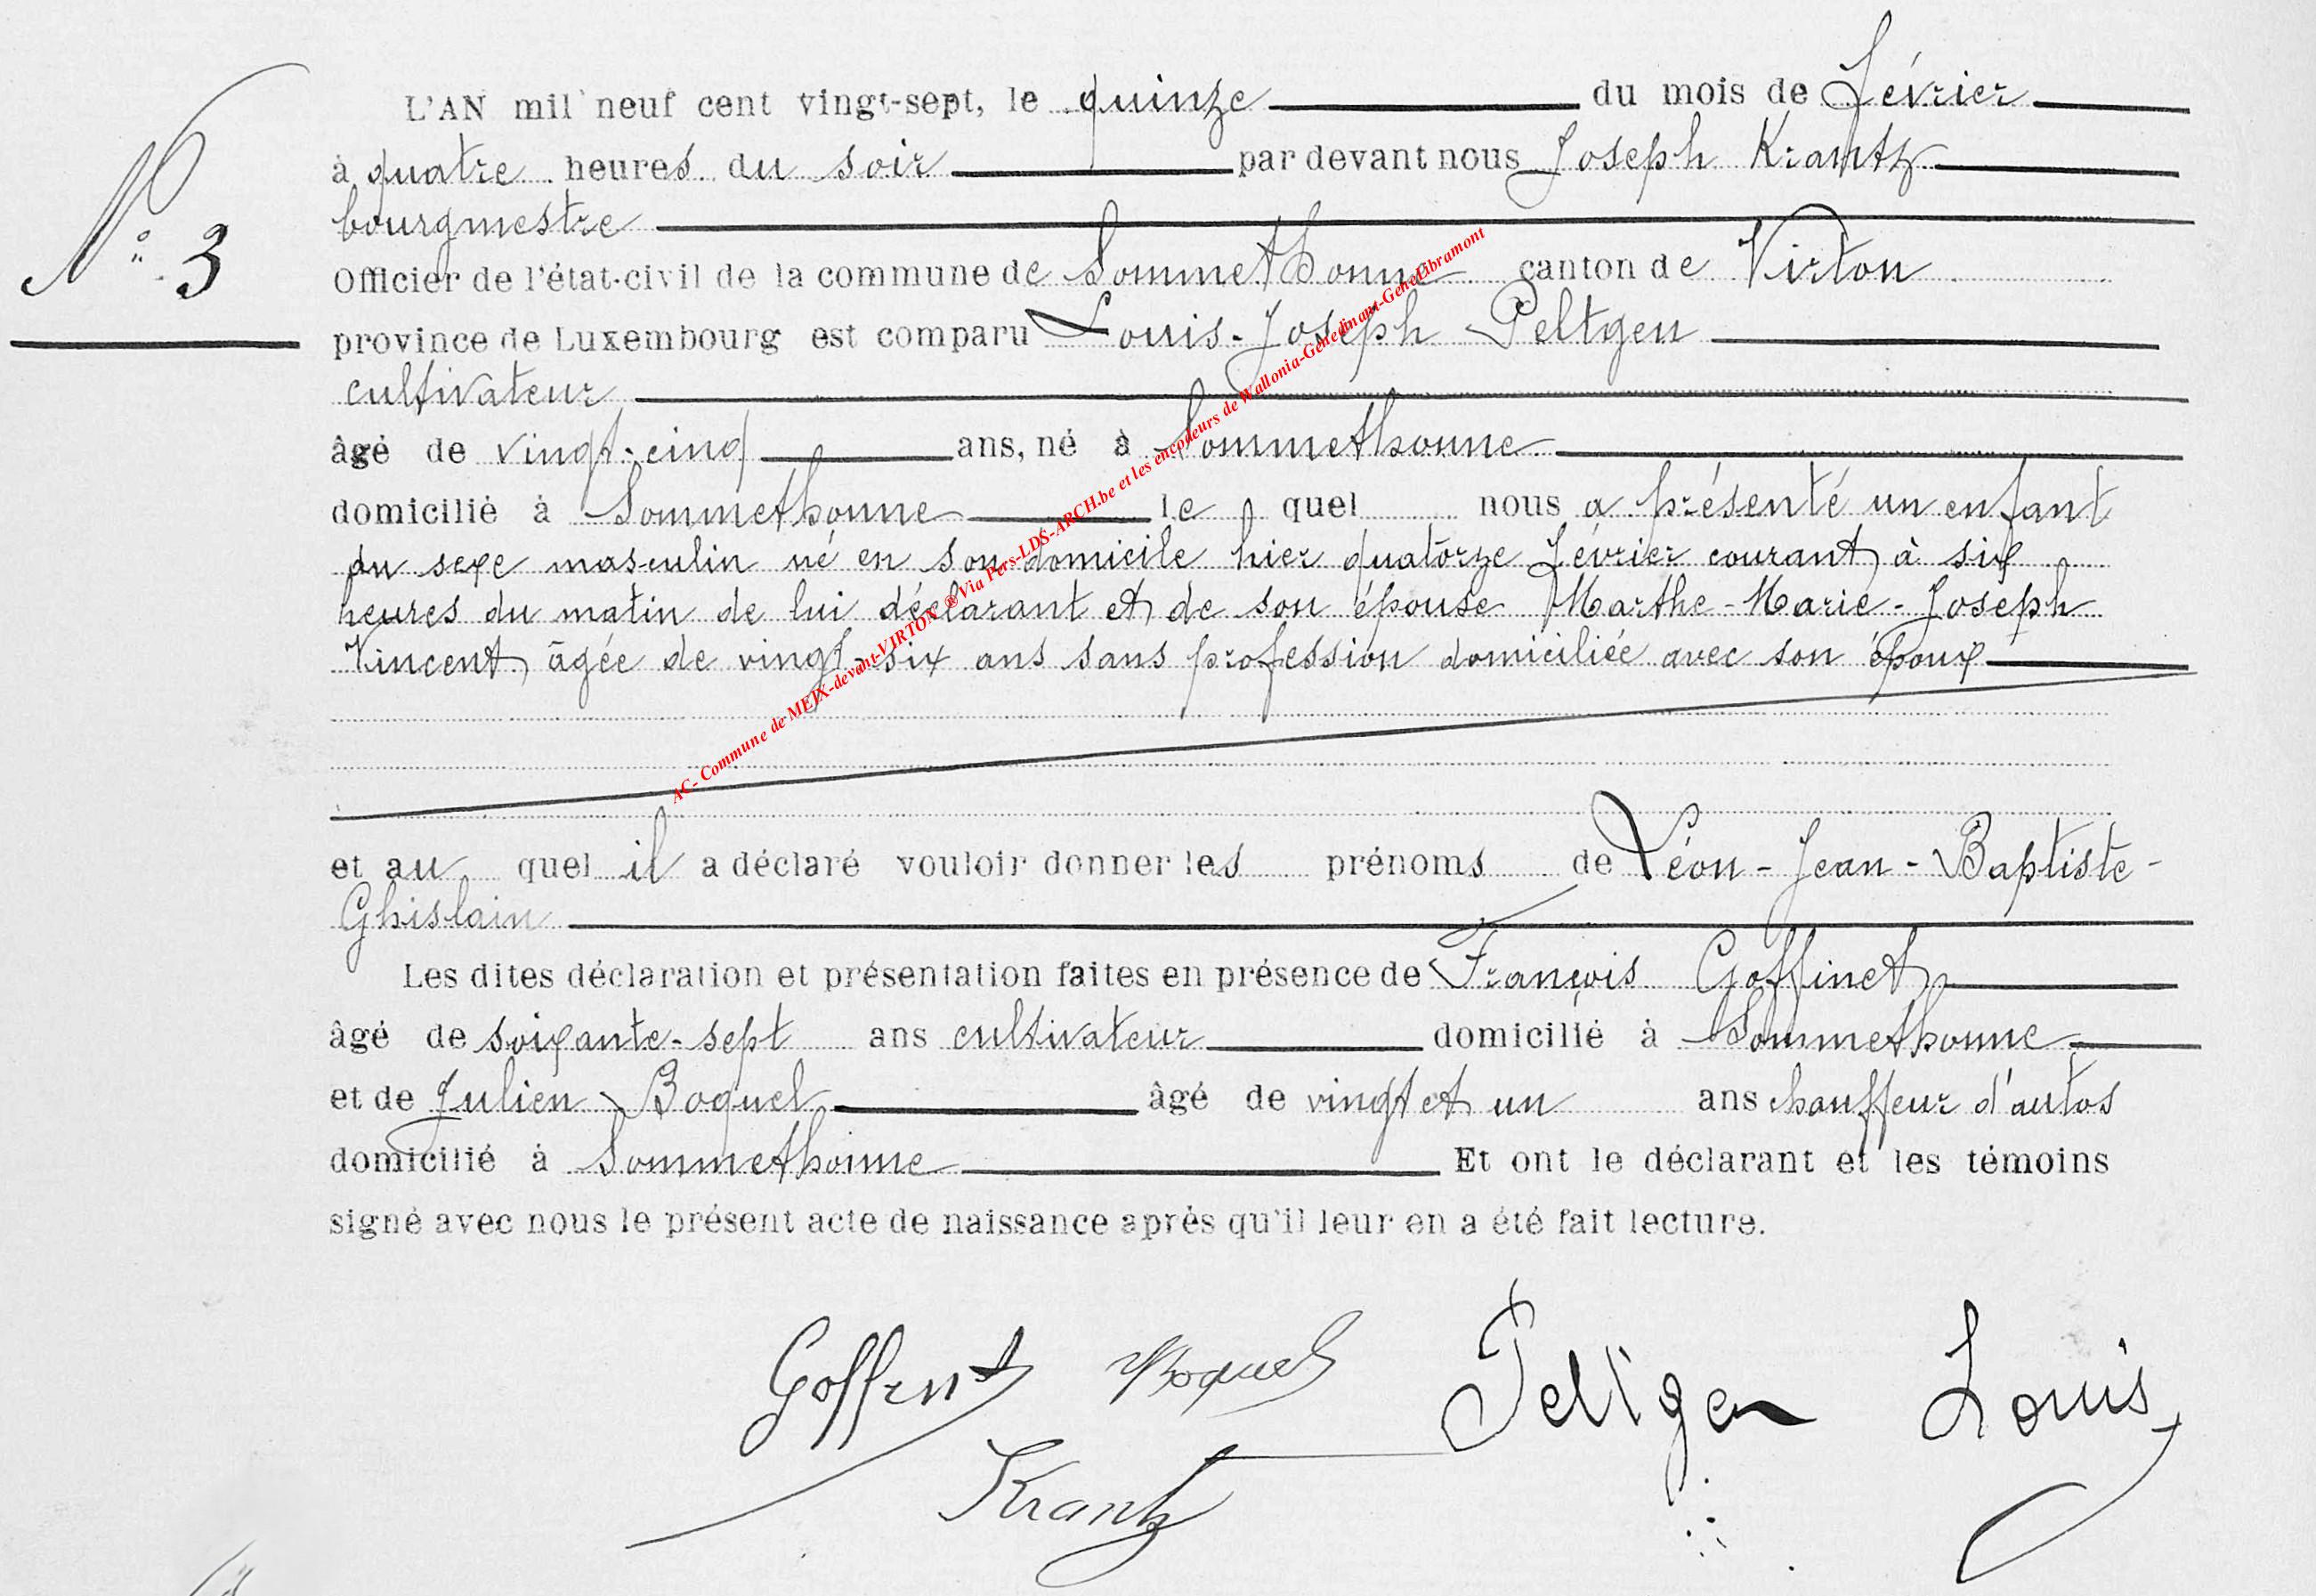 L'AN mil neuf cent vingt-sept, le quinze du mois de Février
à quatre heures du soir par devant nous Joseph Krantz
bourgmestre
N° 3
Officier de l'état-civil de la commune de Sommethonne canton de Virton
province de Luxembourg est comparu Louis-Joseph Peltgen
cultivateur
âgé de vingt-cinq ans, né à Sommethonne
domicilié à Sommethonne le quel nous a présenté un enfant
du sexe masculin né en son domicile hier quatorze Février courant à six
heures du matin de lui déclarant et de son épouse Marthe-Marie-Joseph
Vincent, âgée de vingt-six ans sans profession domiciliée avec son époux
AC- Commune de MEIX-devant-VIRTON ®Via Pers-LDS-ARCH.be et les encodeurs de Wallonia-Genedinant-GeneLibramont
et au quel il a déclaré vouloir donner les prénoms de Léon-Jean-Baptiste-
Ghislain
Les dites déclaration et présentation faites en présence de François Goffinet
âgé de soixante-sept ans cultivateur domicilié à Sommethonne
et de Julien Boquel âgé de vingt et un ans chauffeur d'autos
domicilié à Sommethonne Et ont le déclarant et les témoins
signé avec nous le présent acte de naissance après qu'il leur en a été fait lecture.
Goffinet Boquel Peltgen Louis
Krantz